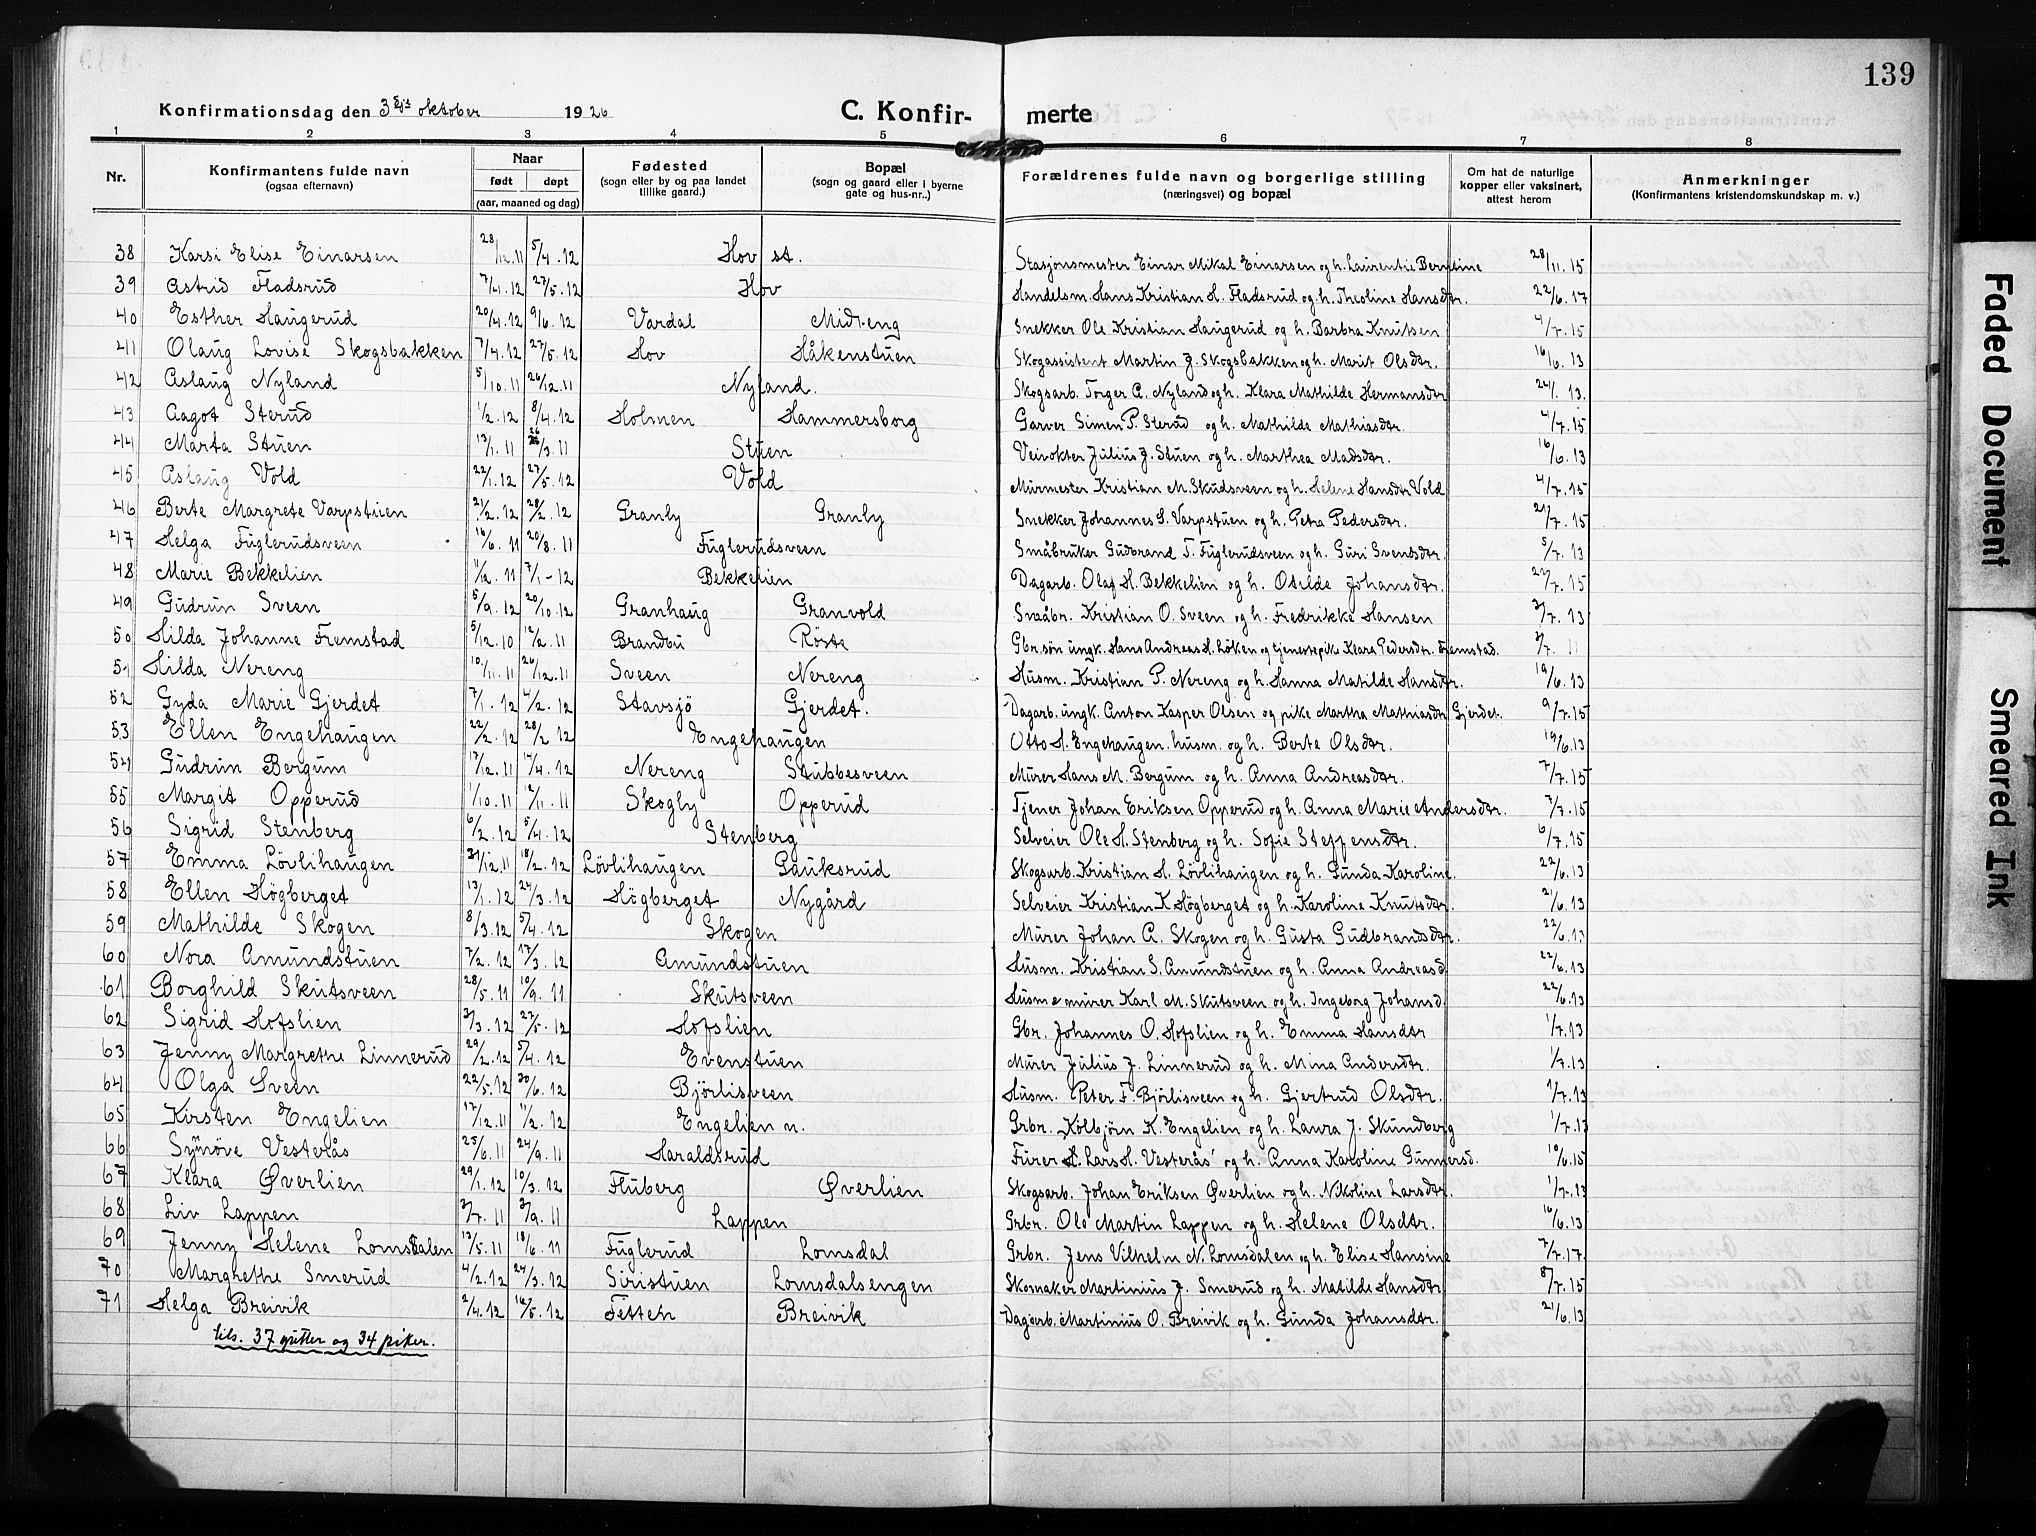 139
Konfirmationsdag den 3dje oktober 1926 C. Konfir- merte
1 2 3 4 5 6 7 8
Nr. Konfirmantens fulde navn (ogsaa efternavn) Naar født døpt (aar, maaned og dag) Fødested (sogn eller by og paa landet tillike gaard.) Bopæl (sogn og gaard eller i byerne gate og hus-nr..) Forældrenes fulde navn og borgerlige stilling (næringsvei) og bopæl Om hat de naturlige kopper eller vaksinert, attest herom Anmerkninger (Konfirmantens kristendomskundskap m. v.)
38 Karsi Elise Einarsen 28/12.11 5/4.12 Hov st. Stasjonsmester Einar Mikal Einarsen og h. Laurentie Berntine 28/11.15
39 Astrid Fladsrud 7/4.12 27/5.12 Hov Handelsm. Hans Kristian H. Fladsrud og h. Theoline Hansdtr. 22/6.17
40 Esther Haugerud 20/4.12 9/6.12 Vardal Midteng Snekker Ole Kristian Haugerud og h. Barbra Knutsen 4/7.15
41 Olaug Lovise Skogsbakken 7/4.12 27/5.12 Hov Håkenstuen Skogassistent Martin J. Skogsbakken og h. Marit Olsdtr. 16/6.13
42 Aslaug Nyland 5/10.11 26/12.11 Nyland. Skogsarb. Torger A. Nyland og h. Klara Mathilde Hermansdtr 24/. 13.
43 Aagot Sterud 1/2.12 8/4.12 Holmen Hammersborg Garver Simen P. Sterud og h. Mathilde Mathiasdtr. 4/7.15
44 Marta Stuen 13/1.11 26/3.11 Stuen Veivokter Julius J. Stuen og h. Marthea Madsdtr. 16/6.13
45 Aslaug Vold 22/1.12 27/5.12 Vold Murmester Kristian M. Skudsveen og h. Helene Hansdtr Vold 4/7.15
46 Berte Margrete Varpstuen 21/2.12 28/2.12 Granly Granly Snekker Johannes S. Varpstuen og h. Petra Pedersdtr. 21/7.15
47 Helga Fuglerudsveen 16/6.11 20/8.11 Fuglerudsveen Småbruker Gudbrand T. Fuglerudsveen og h. Guri Svensdtr. 5/7.13
48 Marie Bekkelien 11/12.11 7/1-12 Bekkelien Dagarb. Olaf H. Bekkelien og h. Otilde Johansdtr. 22/7.15
49 Gudrun Sveen 5/9.12 20/10.12 Granhaug Granvold Småbr. Kristian O. Sveen og h. Fredrikke Hansen 3/7.13
50 Hilda Johanne Fremstad 5/12.10 12/2.11 Brandbu Røste Gbr.søn ungk. Hans Andreas H. Løken og tjenestepike Klara Pedersdtr. Fremstad. 3/7. 11
51 Hilda Nereng 10/11.11 26/12.11 Sveen Nereng Husm. Kristian P. Nereng og h. Hanna Matilde Hansdtr. 19/6.13
52 Gyda Marie Gjerdet 7/1.12 4/2.12 Stavsjö Gjerdet. Dagarb. ungk. Anton Kasper Olsen og pike Martha Mathiasdtr Gjerdet. 9/7.15
53 Ellen Engehaugen 22/2.12 28/2 12 Engehaugen Otto H. Engehaugen husm. og h. Berte Olsdtr. 19/6.13
54 Gudrun Bergum 17/12.11 14/4.12 Nereng Stubbesveen Murer Hans M. Bergum og h. Anna Andreasdtr. 7/7.15
55 Margit Opperud 1/10.11 12/11.11 Skogly Opperud Tjener Johan Eriksen Opperud og h. Anna Marie Andersdtr. 7/7.15
56 Sigrid Stenberg 6/2.12 5/4.12 Stenberg Selveier Ole H. Stenberg og h. Sofie Steffensdtr. 6/7.15
57 Emma Lövlihaugen 31/12.11 18/2.12 Lövlihaugen Gauksrud Skogsarb. Kristian H. Lövlihaugen og h. Gunda Karoline. 22/6.13
58 Ellen Högberget 13/1.12 24/3.12 Högberget Nygård Selveier Kristian K. Högberget og h. Karoline Knutsdtr. 21/6.13
59 Mathilde Skogen 8/3.12 5/4.12 Skogen Murer Johan A. Skogen og h. Gusta Gudbrandsdtr. 22/6.13
60 Nora Amundstuen 7/2.12 17/3.12 Amundstuen Husm. Kristian S. Amundstuen og h. Anna Andreasd. 22/6.13
61 Borghild Skutsveen 28/5.11 10/9.11 Skutsveen Husm & murer Karl M. Skutsveen og h. Ingeborg Johansd. 22/6.13
62 Sigrid Hofslien 3/3.12 27/5.12 Hofslien Gbr. Johannes O. Hofslien og h. Emma Hansdtr 1/7.13
63 Jenny Margrethe Linnerud 29/2.12 5/4.12 Evenstuen Murer Julius J. Linnerud og h. Mina Andersdtr. 1/7.13
64 Olga Sveen 22/5.12 30/6.12 Bjørlisveen Husm. Peter F. Bjørlisveen og h. Gjertrud Olsdtr. 1/7.13
65 Kirsten Engelien 17/12.11 11/2.12 Engelien n. Grbr. Kolbjørn K. Engelien og h. Laura J. Skundberg 1/7.13
66 Synöve Vesterås 25/6.11 24/9.11 Haraldsrud Furer Lars H. Vesterås og h. Anna Karoline Gunnersd. 10/6.15
67 Klara Øverlien 29/1.12 10/3.12 Fluberg Øverlien Skogsarb. Johan Eriksen Øverlien og h. Nikoline Larsdtr. 1/7.13
68 Liv Lappen 3/7.11 3/9.11 Lappen Grbr. Ole Martin Lappen og h. Helene Olsdtr. 16/6.13
69 Jenny Helene Lomsdalen 13/5.11 18/6.11 Fuglerud Lomsdal Grbr. Jens Vilhelm N. Lomsdalen og h. Elise Hansine 7/7.17.
70 Margrethe Smerud 4/2.12 24/3.12 Siristuen Lomsdalsengen Skomaker Martinius J. Smerud og h. Matilde Hansdtr. 8/7.15
71 Helga Breivik 2/4.12 16/5.12 Fetten Breivik Dagarb. Martinius O. Breivik og h. Gunda Johansdtr. 21/6.13
tils. 37 gutter og 34 piker.
Faded Document
Smeared Ink